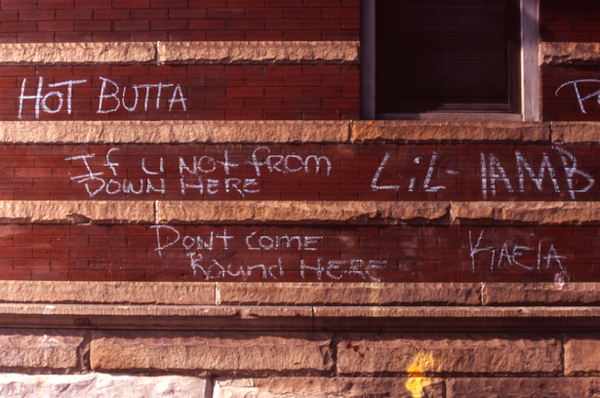 HOT BUTTA
If U NOT from
DOWN HERE
LiL- IAMB
DONT COME
Round HERE
KAEIA